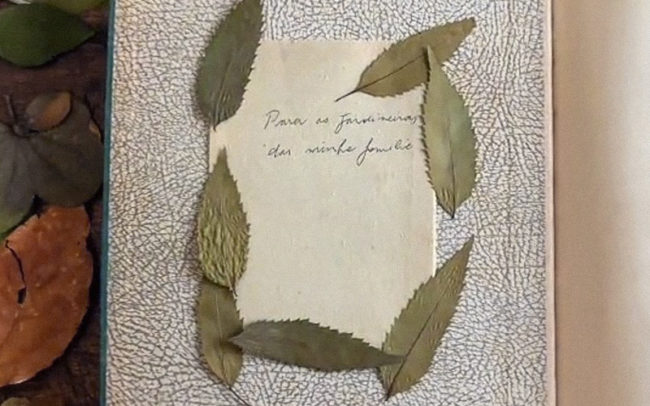 Para as Jardineiras
da minha familia